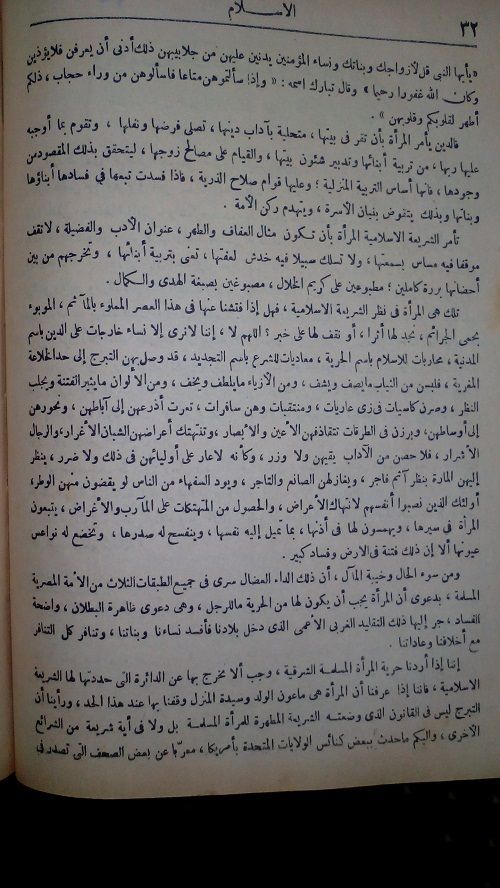 ٣٢
الاسلام
«يأيها النبى قل لأزواجك وبناتك ونساء المؤمنين يدنين عليهن من جلابيبهن ذلك أدنى أن يعرفن فلا يؤذين
وكان الله غفورا رحيما» وقال تبارك اسمه : «وإذا سألتموهن متاعا فاسألوهن من وراء حجاب ، ذلكم
أطهر لقلوبكم وقلوبهن» .
فالدين يأمر المرأة بأن تقر فى بيتها ، متحلية بآداب دينها ، تصلى فرضها ونفلها ، وتقوم بما أوجبه
عليها ربها ، من تربية أبنائها وتدبير شئون بيتها ، والقيام على مصالح زوجها ، ليتحقق بذلك المقصود من
وجودها ، فانها أساس التربية المنزلية ؛ وعليها قوام صلاح الذرية ، فاذا فسدت تبعها فى فسادها أبناؤها
وبناتها وبذلك يتقوض بنيان الأسرة ، وينهدم ركن الأمة .
تأمر الشريعة الاسلامية المرأة بأن تكون مثال العفاف والطهر ، عنوان الأدب والفضيلة ، لا تقف
موقفا فيه مساس بسمعتها ، ولا تسلك سبيلا فيه خدش لعفتها ، تعنى بتربية أبنائها ، وتخرجهم من بين
أحضانها بررة كاملين ؛ مطبوعين على كريم الخلال ، مصبوغين بصبغة الهدى والكمال .
تلك هى المرأة فى نظر الشريعة الاسلامية ، فهل إذا فتشنا عنها فى هذا العصر المملوء بالمآثم ، الموبوء
بحمى الجرائم ، نجد لها أثرا ، أو نقف لها على خبر ؟ اللهم لا ، إننا لا نرى إلا نساء خارجات على الدين باسم
المدنية ، محاربات للاسلام باسم الحرية ، معاديات للشرع باسم التجديد ، قد وصل بهن التبرج إلى حد الخلاعة
المغرية ، فلبسن من الثياب ما يصف ويشف ، ومن الأزياء ما يلطف ويخف ، ومن الألوان ما يثير الفتنة ويجلب
النظر ، وصرن كاسيات فى زى عاريات ، ومنتقبات وهن سافرات ، تعرت أذرعهن إلى آباطهن ، ونحورهن
إلى أوساطهن ، وبرزن فى الطرقات تتقاذفهن الأعين والأبصار ، وتنتهك أعراضهن الشبان الأغرار ، والرجال
الأشرار ، فلا حصن من الآداب يقيهن ولا وزر ، وكأنه لا عار على أوليائهن فى ذلك ولا ضرر ، ينظر
إليهن المارة بنظر آثم فاجر ، ويغازلهن الصانع والتاجر ، ويود السفهاء من الناس لو يقضون منهن الوطر ،
أولئك الذين نصبوا أنفسهم لانتهاك الأعراض ، والحصول من المتهتكات على المآرب والأغراض ، يتبعون
المرأة فى سيرها ، ويهمسون لها فى أذنها ، بما تميل إليه نفسها ، وينفسح له صدرها ، وتخضع له نواعس
عيونها ألا إن ذلك فتنة فى الارض وفساد كبير .
ومن سوء الحال وخيبة المآل ، أن ذلك الداء العضال سرى فى جميع الطبقات الثلاث من الأمة المصرية
المسلمة ، بدعوى أن المرأة يجب أن يكون لها من الحرية ما للرجل ، وهى دعوى ظاهرة البطلان ، واضحة
الفساد ، جر إليها ذلك التقليد الغربى الأعمى الذى دخل بلادنا فأفسد نساءنا وبناتنا ، وتنافر كل التنافر
مع أخلاقنا وعاداتنا .
إننا إذا أردنا حرية المرأة المسلمة الشرقية ، وجب ألا نخرج بها عن الدائرة التى حددتها لها الشريعة
الاسلامية ، فاننا إذا عرفنا أن المرأة هى ماعون الولد وسيدة المنزل وقفنا بها عند هذا الحد ، ورأينا أن
التبرج ليس فى القانون الذى وضعته الشريعة المطهرة للمرأة المسلمة بل ولا فى أية شريعة من الشرائع
الأخرى ، واليكم ما حدث ببعض كنائس الولايات المتحدة بأمريكا ، معربا عن بعض الصحف التى تصدر فى